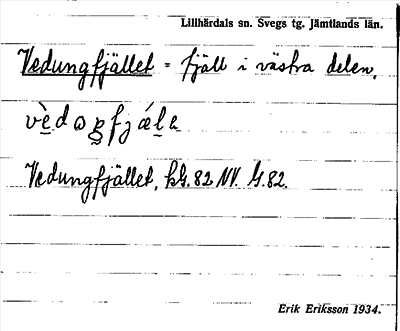 Lillhärdals sn. Svegs tg. Jämtlands län.
Vedungfjället = fjäll i västra delen.
Vedungfjället, kG. 82 NV. G. 82.
Erik Eriksson 1934.